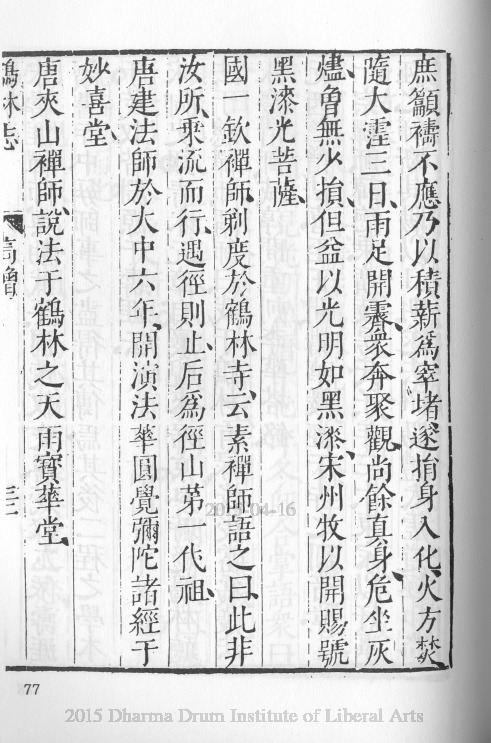 庶籲禱不應乃以積薪爲窣堵遂捐身入化火方焚
隨大霔三日雨足開霽衆奔聚觀尚餘真身危坐灰
燼曾無少損但益以光明如黑漆宋州牧以開賜號
黑漆光菩薩
國一欽禪師剃度於鶴林寺云素禪師語之曰此非
汝所乘流而行遇徑則止后爲徑山第一代祖
唐建法師於大中六年開演法華圓覺彌陀諸經于
妙喜堂
唐夾山禪師說法于鶴林之天雨寶華堂
鶴林志 高僧 三二
2015-04-16
77
2015 Dharma Drum Institute of Liberal Arts